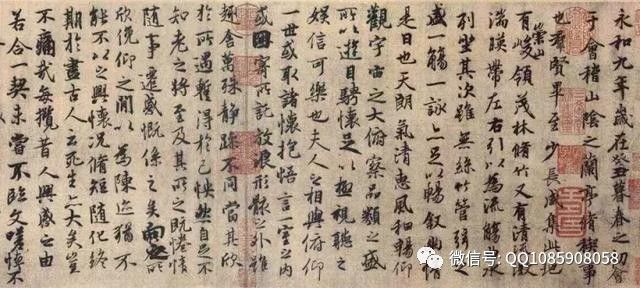 永和九年歲在癸丑暮春之初會
于會稽山陰之蘭亭脩稧事
也群賢畢至少長咸集此地
有崇山峻領茂林脩竹又有清流激
湍暎帶左右引以為流觴曲水
列坐其次雖無絲竹管弦之
盛一觴一詠亦足以暢叙幽情
是日也天朗氣清惠風和暢仰
觀宇宙之大俯察品類之盛
所以遊目騁懷足以極視聽之
娛信可樂也夫人之相與俯仰
一世或取諸懷抱悟言一室之內
或因寄所託放浪形骸之外雖
趣舍萬殊靜躁不同當其欣
於所遇蹔得於己怏然自足不
知老之將至及其所之既惓情
隨事遷感慨係之矣向之所
欣俛仰之間以為陳迹猶不
能不以之興懷況脩短隨化終
期於盡古人云死生亦大矣豈
不痛哉每攬昔人興感之由
若合一契未嘗不臨文嗟悼不
微信号: QQ1085908058